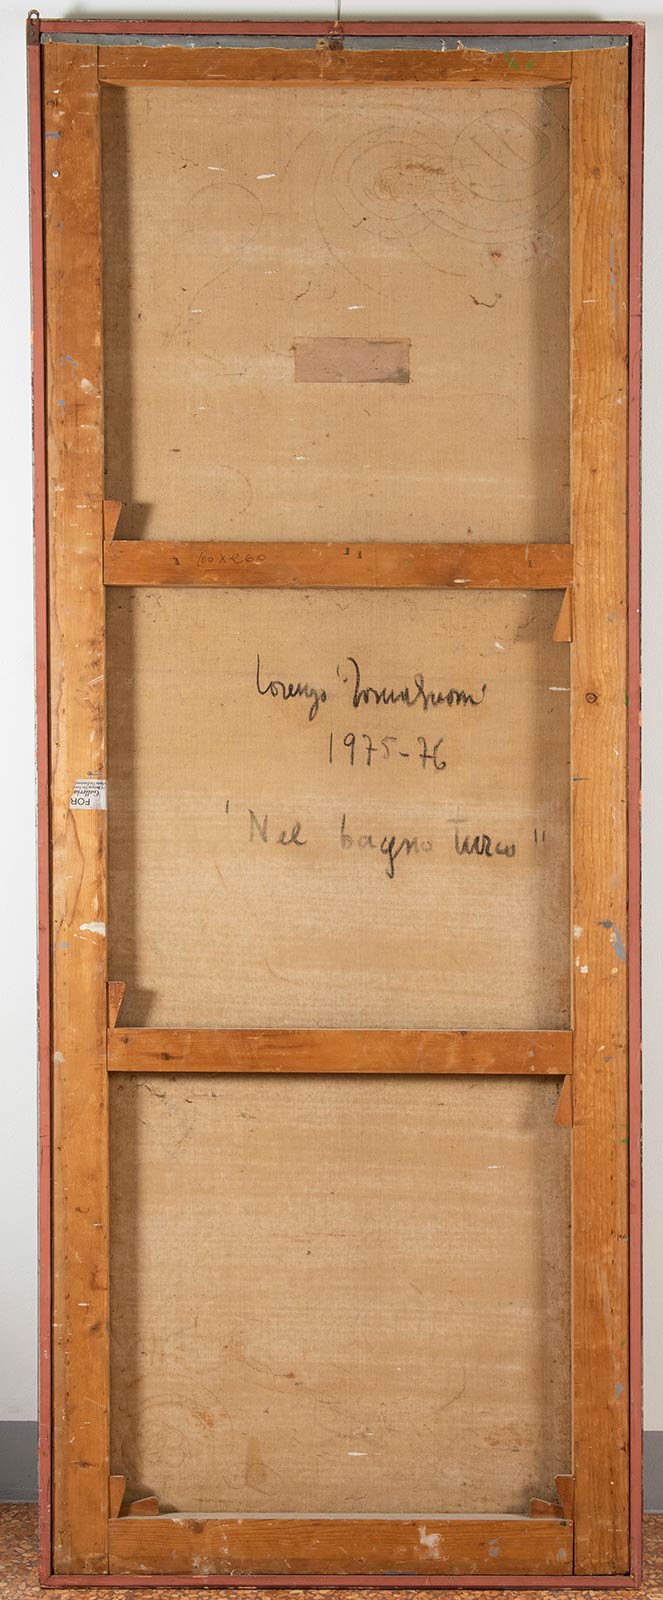 100x260
Lorenzo Tornabuoni
1975-76
"Nel bagno turco"
FOR
Galleria